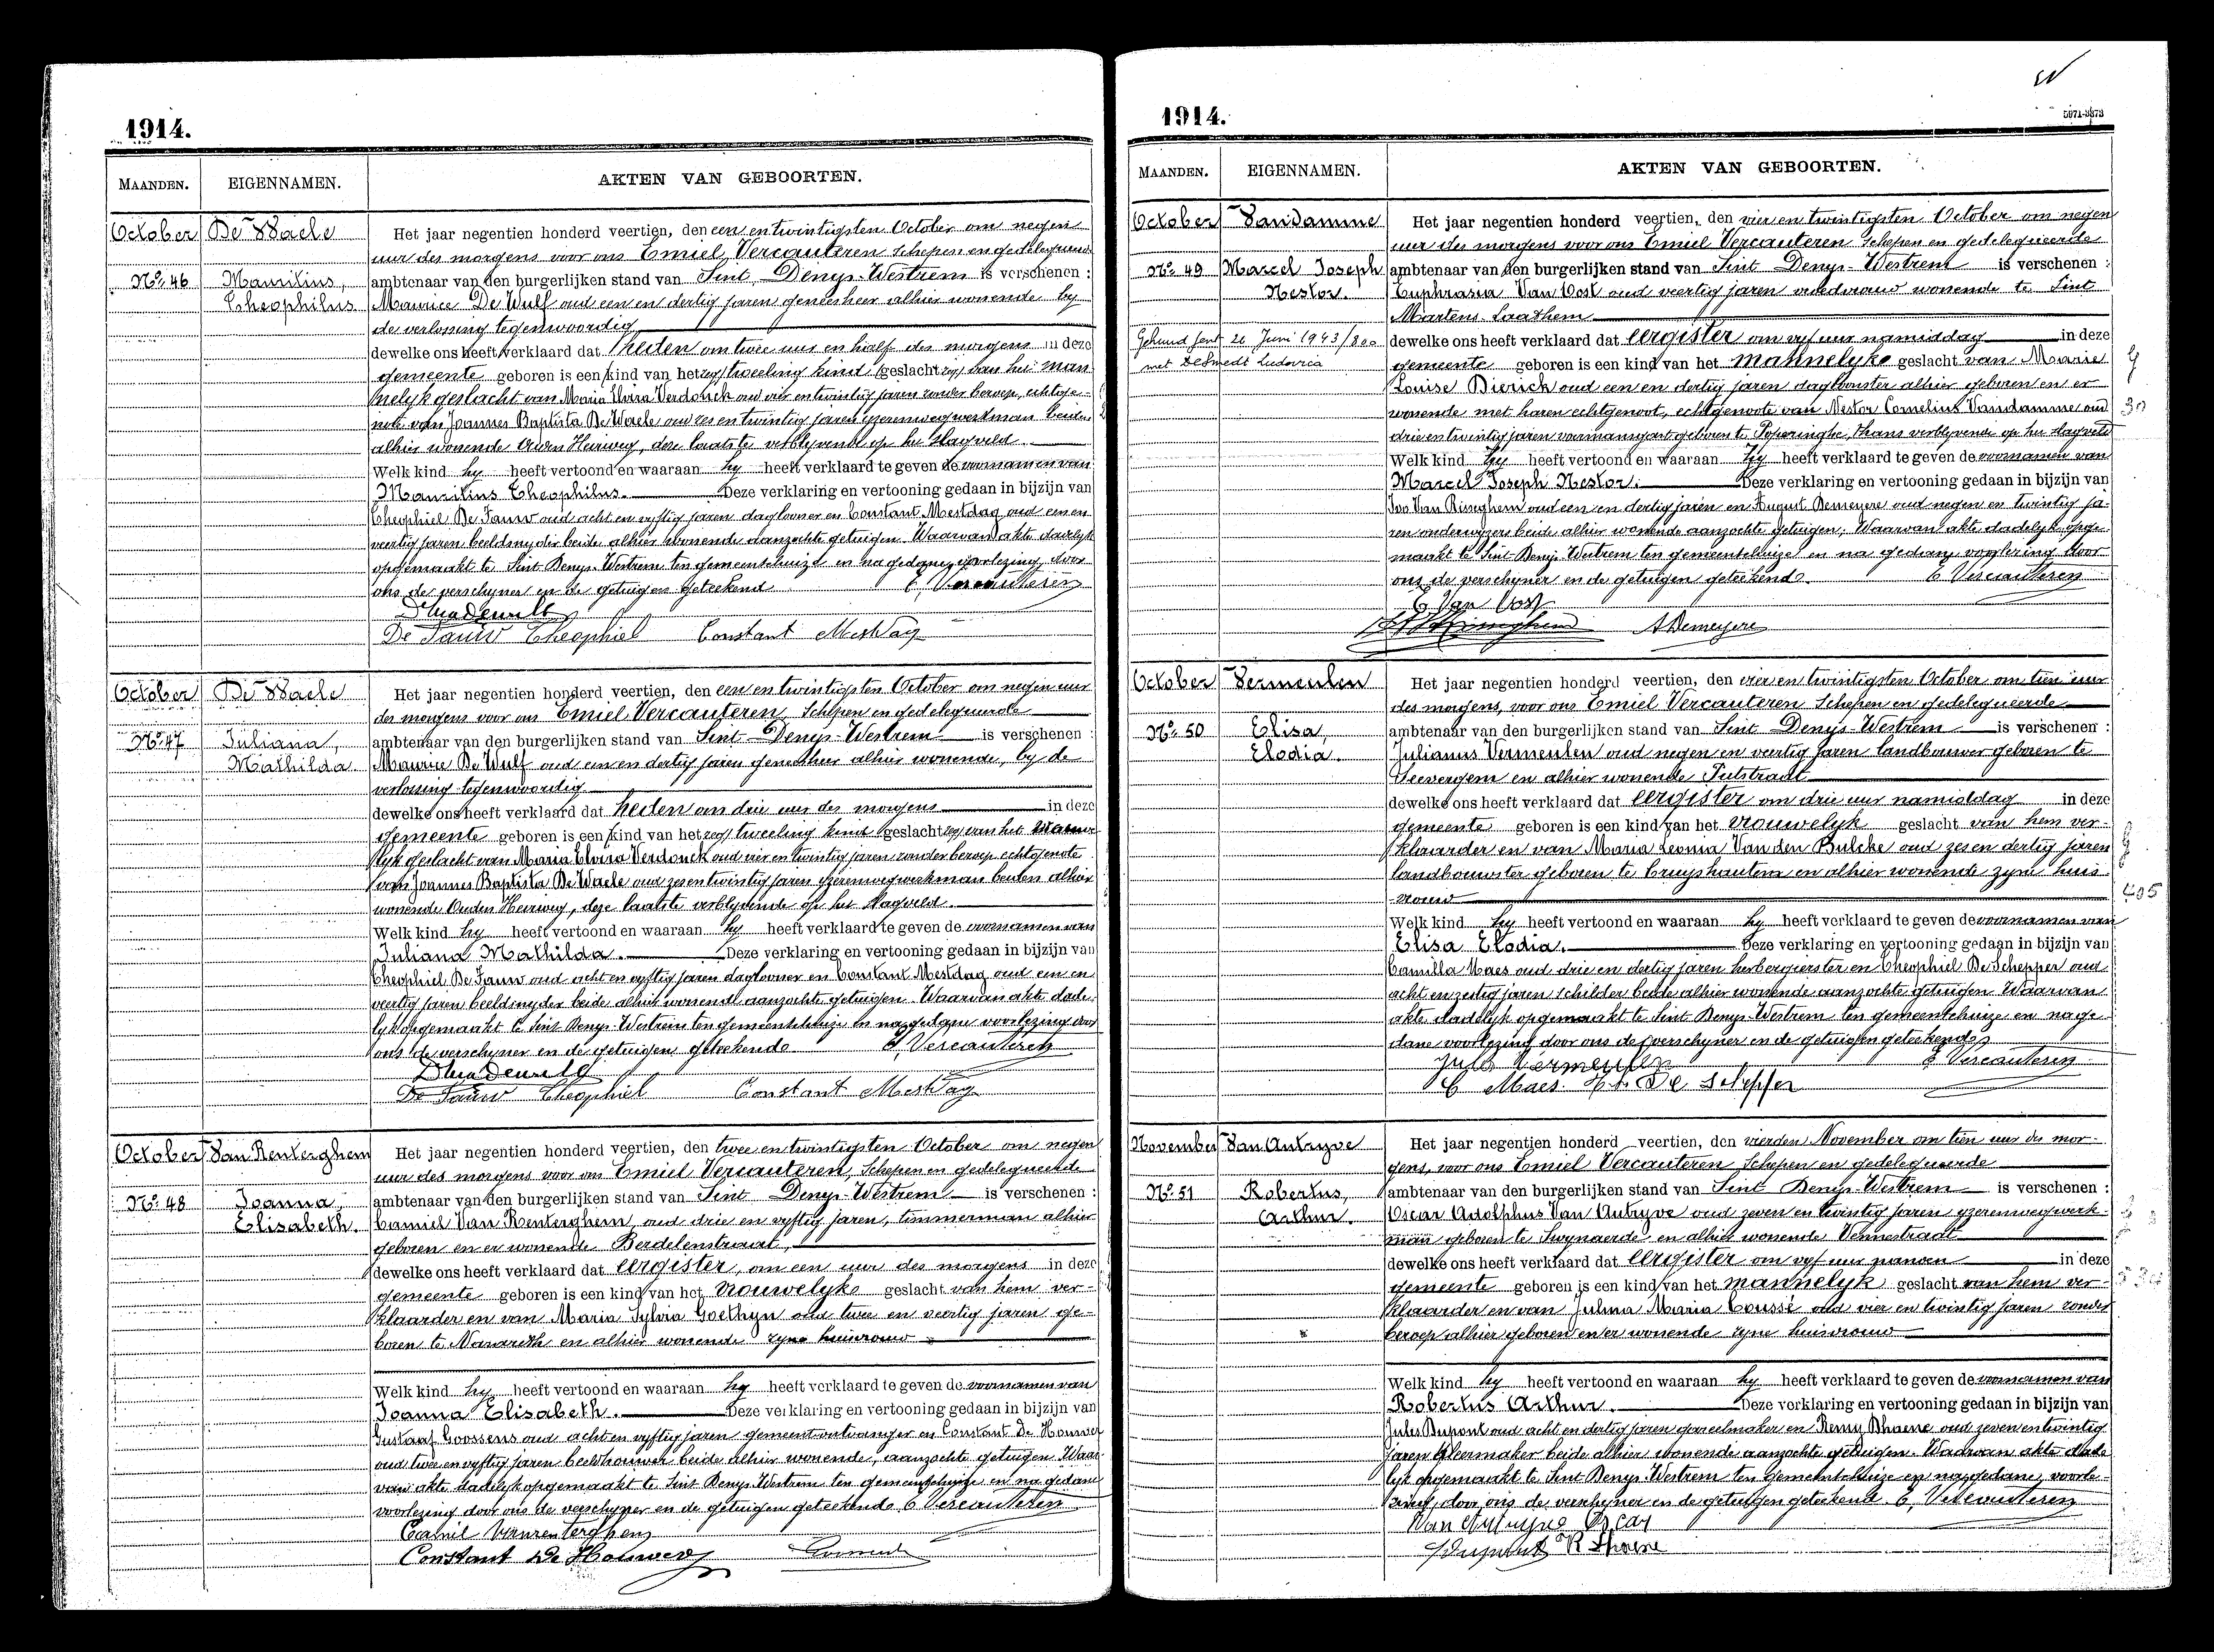 1914.
MAANDEN. EIGENNAMEN. AKTEN VAN GEBOORTEN.
October De Waele Het jaar negentien honderd veertien, den een en twintigsten October om negen
uur des morgens voor ons Emiel Vercauteren Schepen en gedelegueerde
No 46 Mauritius, ambtenaar van den burgerlijken stand van Sint Denys-Westrem is verschenen :
Theophilus Maurice De Wulf oud een en dertig jaren geneesheer alhier wonende by
de verlossing tegenwoordig
dewelke ons heeft verklaard dat heden om twee uur en half des morgens in deze
gemeente geboren is een kind van het zeg tweeling kind geslacht zeg van het man
nelyk geslacht van Maria Elvira Verdonck oud vier en twintig jaren zonder beroep, echtge-
note van Joannes Baptista De Waele oud zes en twintig jaren yzerenwegwerkman beiden
alhier wonende Ouden Heirweg, deze laatste verblyvende op het slagveld
Welk kind hy heeft vertoond en waaraan hy heeft verklaard te geven de voornamen van
Mauritius Theophilus. Deze verklaring en vertooning gedaan in bijzijn van
Theophiel De Fauw oud acht en vyftig jaren daglooner en Constant Mestdag oud een en
veertig jaren beeldsnyder beide alhier wonende aanzochte getuigen. Waarvan akte dadelyk
opgemaakt te Sint Denys-Westrem ten gemeentehuize en na gedane voorlezing door
ons de verschyner en de getuigen geteekend E, Vercauteren
De Fauw Theophiel Constant Mestdag
October De Waele Het jaar negentien honderd veertien, den een en twintigsten October om negen uur
des morgens voor ons Emiel Vercauteren Schepen en gedelegueerde
No 47 Juliana, ambtenaar van den burgerlijken stand van Sint Denys-Westrem is verschenen :
Mathilda Maurice De Wulf oud een en dertig jaren geneesheer alhier wonende, by de
verlossing tegenwoordig
dewelke ons heeft verklaard dat heden om drie uur des morgens in deze
gemeente geboren is een kind van het zeg tweeling kind geslacht zeg van het vrouwe
lyk geslacht van Maria Elvira Verdonck oud vier en twintig jaren zonder beroep echtgenote
van Joannes Baptista De Waele oud zes en twintig jaren yzerenwegwerkman beiden alhier
wonende Ouden Heirweg, deze laatste verblyvende op het slagveld
Welk kind hy heeft vertoond en waaraan hy heeft verklaard te geven de voornamen van
Juliana Mathilda. Deze verklaring en vertooning gedaan in bijzijn van
Theophiel De Fauw oud acht en vyftig jaren daglooner en Constant Mestdag oud een en
veertig jaren beeldsnyder beide alhier wonende aanzochte getuigen. Waarvan akte dade-
lyk opgemaakt te Sint Denys-Westrem ten gemeentehuize en na gedane voorlezing door
ons de verschyner en de getuigen geteekend E, Vercauteren
De Fauw Theophiel Constant Mestdag
October Van Renterghem Het jaar negentien honderd veertien, den twee en twintigsten October om negen
uur des morgens voor ons Emiel Vercauteren, Schepen en gedelegueerde
No 48 Joanna, ambtenaar van den burgerlijken stand van Sint Denys-Westrem is verschenen :
Elisabeth. Camiel Van Renterghem, oud drie en vyftig jaren, timmerman alhier
geboren en er wonende Berdelenstraat,
dewelke ons heeft verklaard dat eergister, om een uur des morgens in deze
gemeente geboren is een kind van het vrouwelyke geslacht van hem ver-
klaarder en van Maria Sylvia Goethyn oud twee en veertig jaren ge-
boren te Nazareth en alhier wonende zyne huisvrouw
Welk kind hy heeft vertoond en waaraan hy heeft verklaard te geven de voornamen van
Joanna Elisabeth. Deze verklaring en vertooning gedaan in bijzijn van
Gustaaf Goossens oud acht en vyftig jaren gemeente ontvanger en Constant De Houwer
oud twee en vyftig jaren beeldhouwer beide alhier wonende, aanzochte getuigen. Waar
van akte dadelyk opgemaakt te Sint Denys-Westrem ten gemeentehuize en na gedane
voorlezing door ons de verschyner en de getuigen geteekend. E Vercauteren
Camil Vanrenterghem
Constant De Houwer
1914.
5971-5873
MAANDEN. EIGENNAMEN. AKTEN VAN GEBOORTEN.
October Vandamme Het jaar negentien honderd veertien, den vier en twintigsten October om negen
uur des morgens voor ons Emiel Vercauteren Schepen en gedelegueerde
No 49 Marcel Joseph ambtenaar van den burgerlijken stand van Sint Denys-Westrem is verschenen :
Nestor. Euphrasia Van Oost oud veertig jaren vroedvrouw wonende te Sint
Martens Laathem
Gehuwd Gent 26 Juni 1943/800 dewelke ons heeft verklaard dat eergister om vyf uur namiddag in deze
met DeSmedt Ludovica gemeente geboren is een kind van het mannelyke geslacht van Marie
Louise Dierick oud een en dertig jaren dagloonster alhier geboren en er
wonende met haren echtgenoot, echtgenote van Nestor Cornelius Vandamme oud
drie en twintig jaren voermansgast geboren te Poperinghe, thans verblyvende op het slagveld
Welk kind zy heeft vertoond en waaraan zy heeft verklaard te geven de voornamen van
Marcel Joseph Nestor. Deze verklaring en vertooning gedaan in bijzijn van
Ivo Van Ringhem oud een en dertig jaren en August Demeyere oud negen en twintig ja-
ren onderwyzers beide alhier wonende aanzochte getuigen. Waarvan akte dadelyk opge-
maakt te Sint Denys-Westrem ten gemeentehuize en na gedane voorlezing door
ons de verschyner en de getuigen geteekend. E Vercauteren
E Van Oost
A Demeyere
October Vermeulen Het jaar negentien honderd veertien, den vier en twintigsten October om tien uur
des morgens, voor ons Emiel Vercauteren Schepen en gedelegueerde
No 50 Elisa, ambtenaar van den burgerlijken stand van Sint Denys-Westrem is verschenen :
Elodia. Julianus Vermeulen oud negen en veertig jaren landbouwer geboren te
Seevergem en alhier wonende Putstraat
dewelke ons heeft verklaard dat eergister om drie uur namiddag in deze
gemeente geboren is een kind van het vrouwelyk geslacht van hem ver-
klaarder en van Maria Leonia Van den Bulcke oud zes en dertig jaren
landbouwster geboren te Cruyshautem en alhier wonende zyne huis
vrouw
Welk kind hy heeft vertoond en waaraan hy heeft verklaard te geven de voornamen van
Elisa Elodia. Deze verklaring en vertooning gedaan in bijzijn van
Camilla Maes oud drie en dertig jaren herbergierster en Theophiel De Schepper oud
acht en zestig jaren schilder beide alhier wonende aanzochte getuigen. Waarvan
akte dadelyk opgemaakt te Sint Denys-Westrem ten gemeentehuize en na ge
dane voorlezing door ons de verschyner en de getuigen geteekend
Jules Vermeulen E Vercauteren
C Maes Th De Schepper
November Van Autryve Het jaar negentien honderd veertien, den vierden November om tien uur des mor-
gens, voor ons Emiel Vercauteren Schepen en gedelegueerde
No 51 Robertus, ambtenaar van den burgerlijken stand van Sint Denys-Westrem is verschenen :
Arthur. Oscar Adolphus Van Autryve oud zeven en twintig jaren yzerenwegwerk-
man geboren te Swynaerde en alhier wonende Vennestraat
dewelke ons heeft verklaard dat eergister om vyf uur namen in deze
gemeente geboren is een kind van het mannelyk geslacht van hem ver-
klaarder en van Julma Maria Coussé oud vier en twintig jaren zonder
beroep alhier geboren en er wonende zyne huisvrouw
Welk kind hy heeft vertoond en waaraan hy heeft verklaard te geven de voornamen van
Robertus Arthur. Deze verklaring en vertooning gedaan in bijzijn van
Jules Dupont oud acht en dertig jaren gareelmaker en Remy Dhaene oud zeven en twintig
jaren kleermaker beide alhier wonende aanzochte getuigen. Waarvan akte dade
lyk opgemaakt te Sint Denys-Westrem ten gemeentehuize en na gedane voorle-
zing door ons de verschyner en de getuigen geteekend. E, Vercauteren
Van Autryve Oscar
Dupont R Dhaene